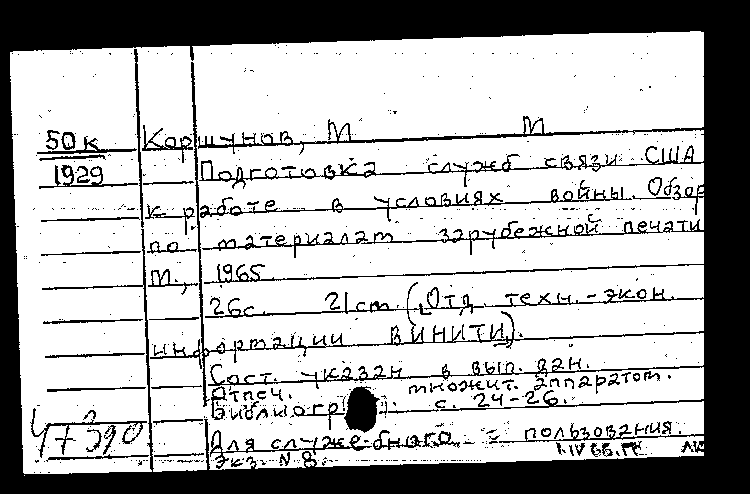 50к Коршунов, М М
1929 Подготовка служб связи США
к работе в условиях войны. Обзор
по материалам зарубежной печати
М., 1965
26с. 21см. (Отд. техн.-экон.
информации ВИНИТИ).
Сост. указан в вып. дан.
Отпеч. множит. аппаратом.
Библиогр. с. 24-26.
Для служебного пользования.
Экз. N 8.